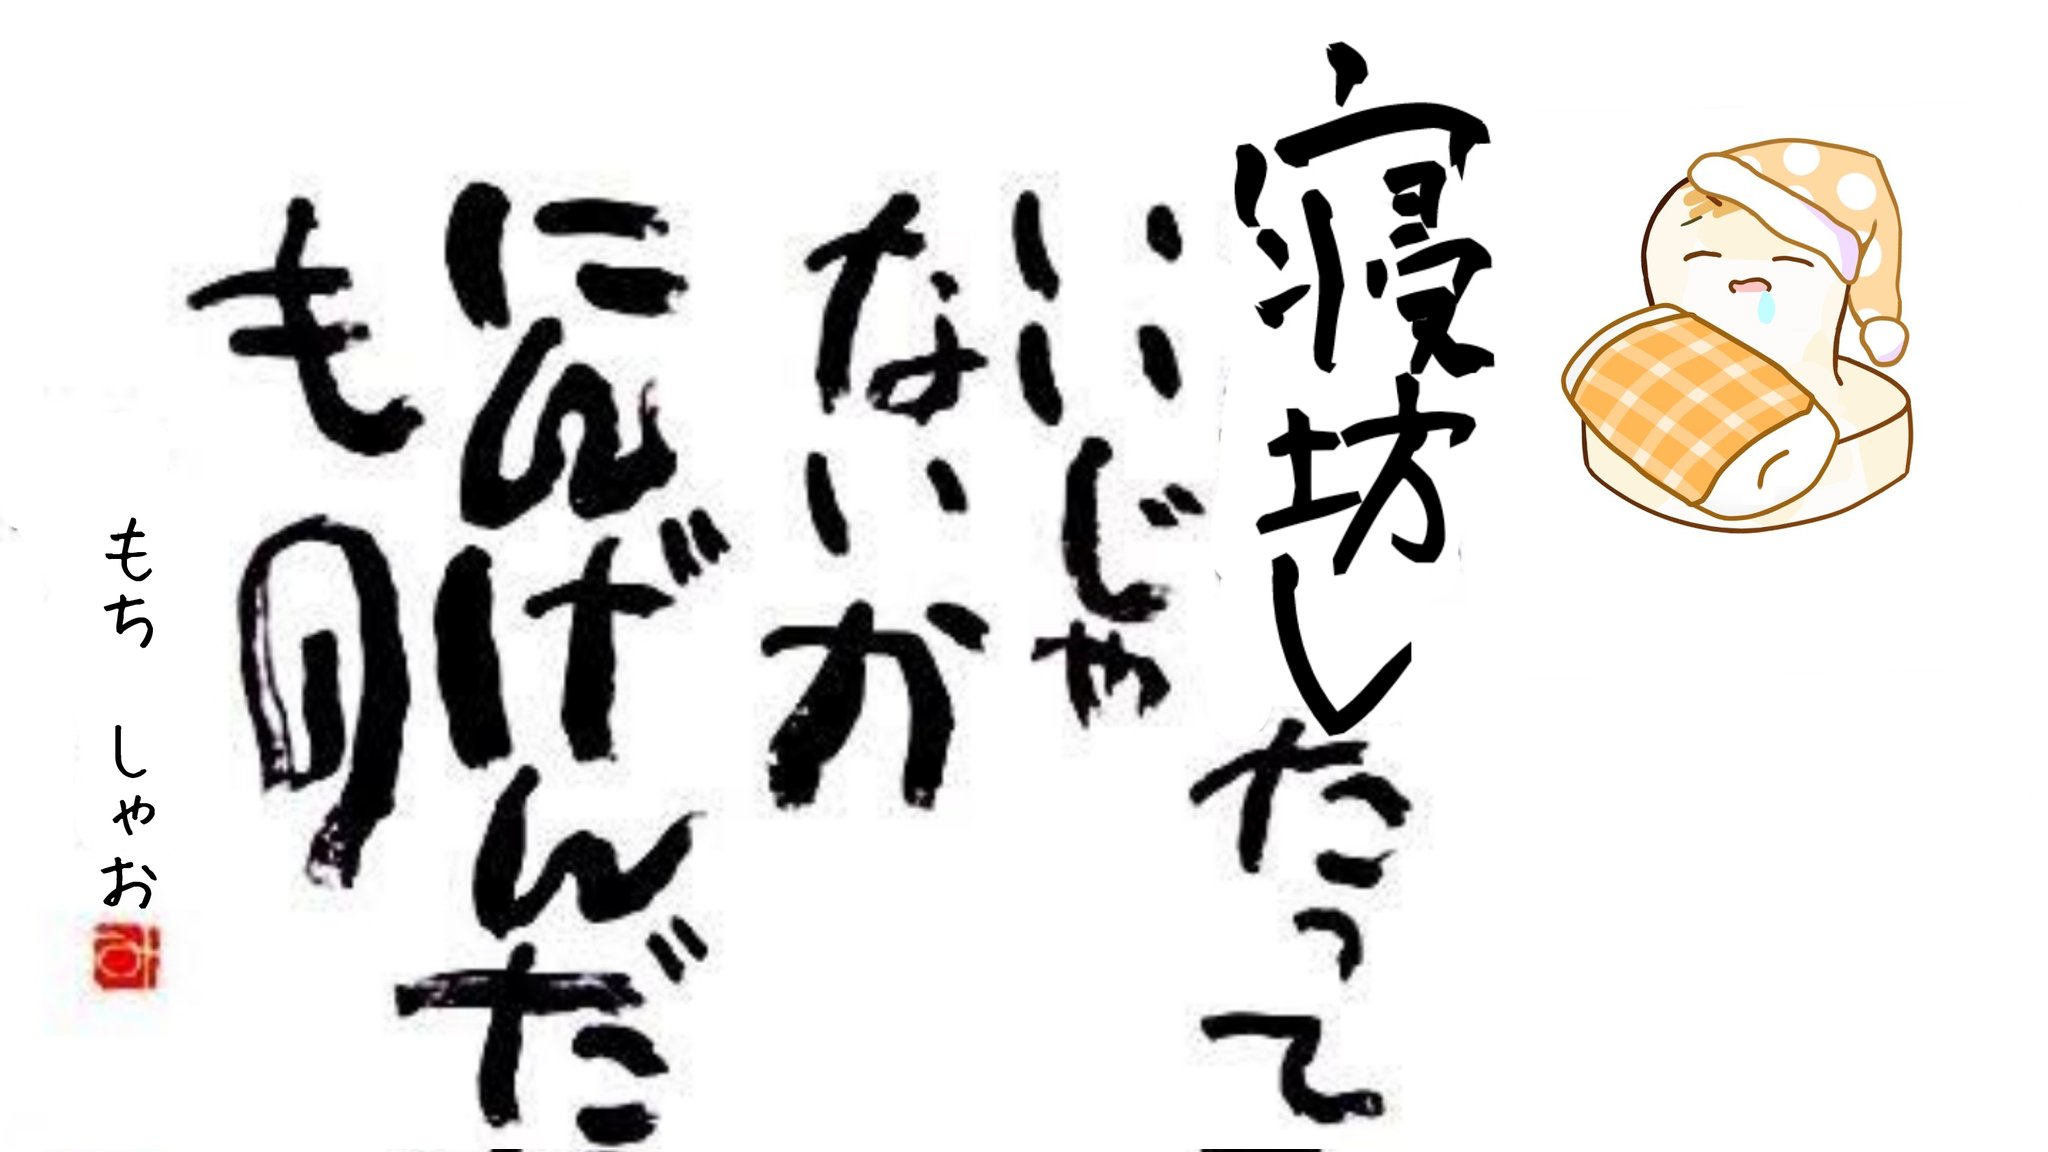 寝坊したって
いいじゃ
ないか
にんげんだ
もの
もち しゃお